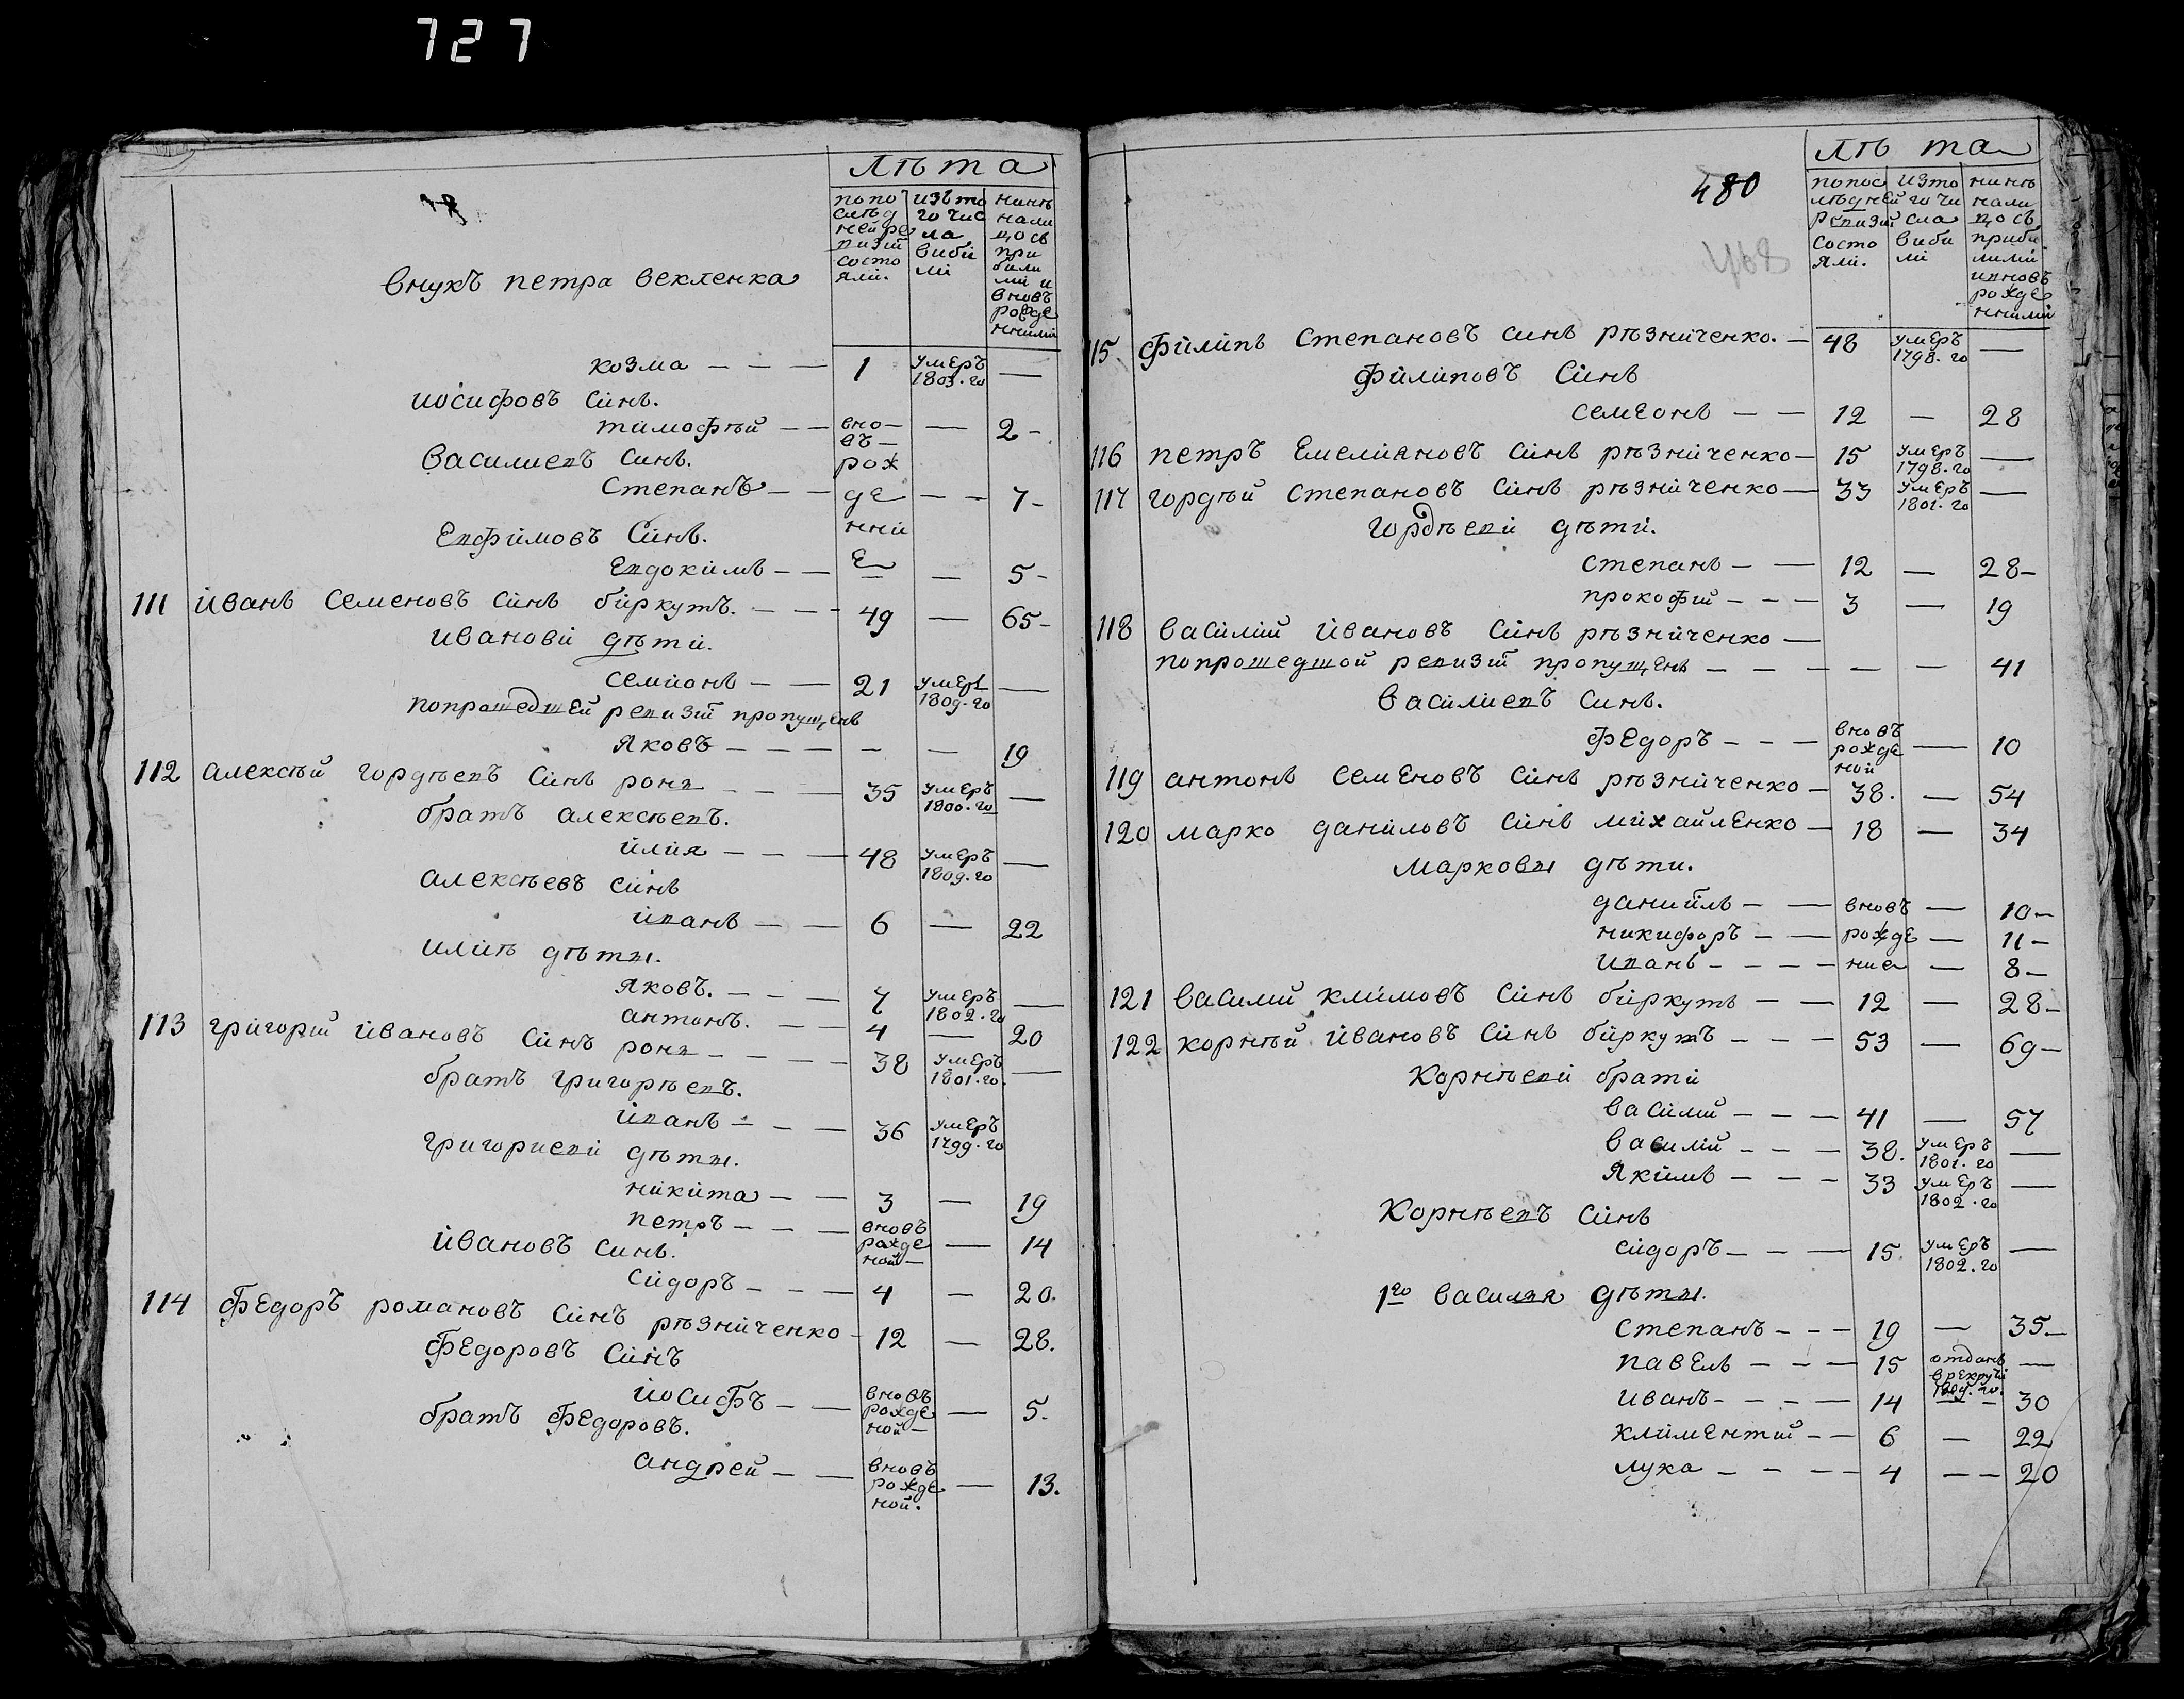 727
лѣта
по по слѣд ней ре визїи состо яли.
изъ то го чис ла вибы ли
нинѣ нали цо съ при были ми и вновь рожде нними
внукъ петра векленка
козма — — — 1 умеръ 1803. го —
иосифовъ синъ.
тимофѣй — — вно — 2 -
василиевъ синъ. въ — рож
степанъ — — де — — 7 -
Евфимовъ синъ. нний
Евдокимъ — — Е — 5 -
111 иванъ семеновъ синъ биркутъ. — — — 49 — 65 -
иванови дѣти.
семионъ — — 21 умеръ 1809. го —
попрошедшей ревизїи пропущенъ
яковъ — — — - — 19
112 алексѣй гордѣевъ синъ рона — — — 35 умеръ 1800. го —
братъ алексѣевъ.
илия — — — 48 умеръ 1809. го —
алексѣевъ синъ
иванъ — — 6 — 22
илиѣ дѣты.
яковъ. — — — 7 умеръ 1802. го —
антонъ. — — 4 — 20
113 григорїй ивановъ синъ рона — — — — 38 умеръ 1801. го. —
братъ григорѣевъ.
иванъ — — — 36 умеръ 1799. го
григориеви дѣты.
никита — — 3 — 19
петръ — — — вновъ рожде ной — — 14
ивановъ синъ.
сидоръ — — — 4 — 20.
114 федоръ романовъ синъ рѣзниченко - 12 — 28.
федоровъ синъ
иосифъ — — вновъ рожде ной — — 5.
братъ федоровъ.
андрей — — вновъ рожде ной. — 13.
480
468
лѣ та
попос лѣдней ревизїи состо яли.
изто го чи сла виби ли
нинѣ нали цо съ приби лими ивновъ рожде нними
115 филипъ степановъ синъ рѣзниченко. — 48 умеръ 1798. го —
филиповъ синъ
семеонъ — — 12 — 28
116 петръ Емелияновъ синъ рѣзниченко — 15 умеръ 1798. го —
117 гордѣй степановъ синъ рѣзниченко — 33 умеръ 1801. го —
гордѣеви дѣти.
степанъ — — 12 — 28 -
прокофий — — — 3 — 19
118 василий ивановъ синъ рѣзниченко —
попрошедшой ревизїи пропущенъ — — — — — 41
василиевъ синъ.
федоръ — — — вновъ рожде ной — 10
119 антонъ семеновъ синъ рѣзниченко — 38. — 54
120 марко даниловъ синъ михайлЕнко — 18 — 34
марковы дѣти.
даниилъ — — вновъ — 10 -
никифоръ — — рожде — 11 -
иванъ — — — — ние — 8 -
121 василий климовъ синъ биркутъ — — 12 — 28 -
122 корнѣй ивановъ синъ биркутъ — — — 53 — 69 -
корнѣеви брати
василий — — — 41 — 57
василий — — — 38. умеръ 1801. го —
якимъ — — — 33 умеръ 1802. го —
корнѣевъ синъ
сидоръ — — — 15. умеръ 1802. го —
1го василия дѣты.
степанъ — — — 19 — 35 -
павелъ — — — 15 отданъ врекруты —
иванъ — — — — 14 — 30
климентий — — 6 — 22
лука — — — — 4 — — 20